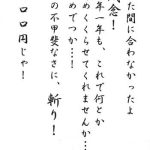 た間に合わなかったよ
念!
年一年も、これで何とか
めくくらせてくれませんか…
めでつか…!
の不甲斐なさに、斬り!
口口円じゃ!